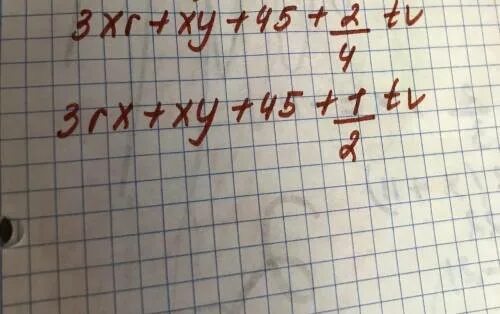 3xr + xy + 45 + 2/4 tv
3rx + xy + 45 + 1/2 tv